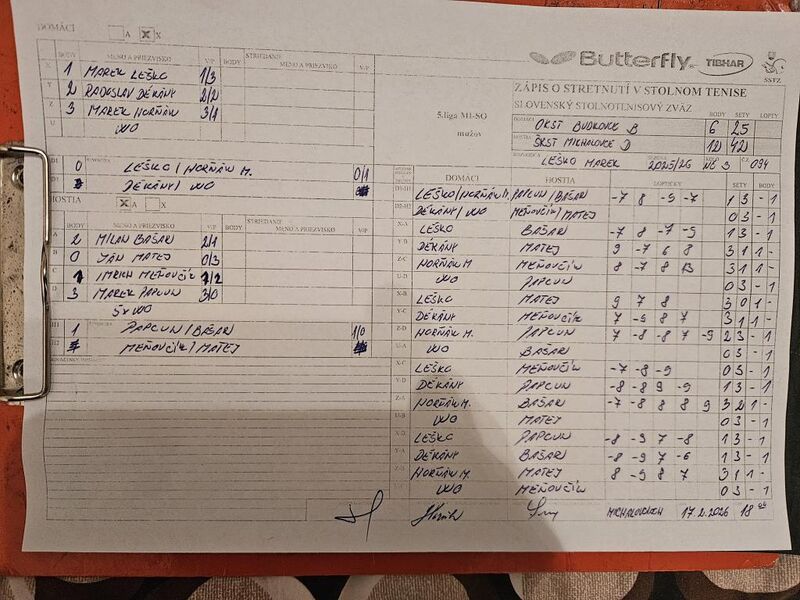 DOMÁCI A X
BODY MENO A PRIEZVISKO V/P BODY STRIEDANIE MENO A PRIEZVISKO V/P
X 1 MAREK LEŠKO 1/3
Y 2 RADOSLAV DÉKÁNY 2/2
Z 3 MAREK HORŇÁK 3/1
U WO
0 LEŠKO/HORŇÁK M. 0/1
DÉKÁNY/WO
HOSTIA A X
BODY MENO A PRIEZVISKO V/P BODY STRIEDANIE MENO A PRIEZVISKO V/P
A 2 MILAN BAŠAR 2/1
B 0 JÁN MATEJ 0/3
C 1 IMRICH MEŇOVČÍK 1/2
D 3 MAREK PAPCUN 3/0
5x WO
1 PAPCUN/BAŠAR 1/0
MEŇOVČÍK/MATEJ
Butterfly TIBHAR SSTZ
ZÁPIS O STRETNUTÍ V STOLNOM TENISE
SLOVENSKÝ STOLNOTENISOVÝ ZVÄZ
5.liga M1-SO
mužov
BODY SETY LOPTY
DOMÁCI OKST BUDKOVCE B 6 25
HOSTIA ŠKST MICHALOVCE D 12 42
LEŠKO MAREK 2025/26 094
DOMÁCI HOSTIA LOPTIČKY SETY BODY
LEŠKO/HORŇÁK M. PAPCUN/BAŠAR -7 8 -9 -7 1 3 - 1
DÉKÁNY/WO MEŇOVČÍK/MATEJ 0 3 - 1
X-A LEŠKO BAŠAR -7 8 -7 -9 1 3 - 1
Y-B DÉKÁNY MATEJ 9 -7 6 8 3 1 1 -
Z-C HORŇÁK M. MEŇOVČÍK 8 -7 8 13 3 1 1 -
U-D WO PAPCUN 0 3 - 1
X-B LEŠKO MATEJ 9 7 8 3 0 1 -
Y-C DÉKÁNY MEŇOVČÍK 7 -9 8 7 3 1 1 -
Z-D HORŇÁK M. PAPCUN 7 -8 -8 7 -9 2 3 - 1
U-A WO BAŠAR 0 3 - 1
X-C LEŠKO MEŇOVČÍK -7 -8 -9 0 3 - 1
Y-D DÉKÁNY PAPCUN -8 -8 9 -9 1 3 - 1
Z-A HORŇÁK M. BAŠAR -7 -8 8 8 9 3 2 1 -
U-B WO MATEJ 0 3 - 1
X-D LEŠKO PAPCUN -8 -9 7 -8 1 3 - 1
Y-A DÉKÁNY BAŠAR -8 -9 7 -6 1 3 - 1
Z-B HORŇÁK M. MATEJ 8 -9 8 7 3 1 1 -
WO MEŇOVČÍK 0 3 - 1
17.2.2026 18